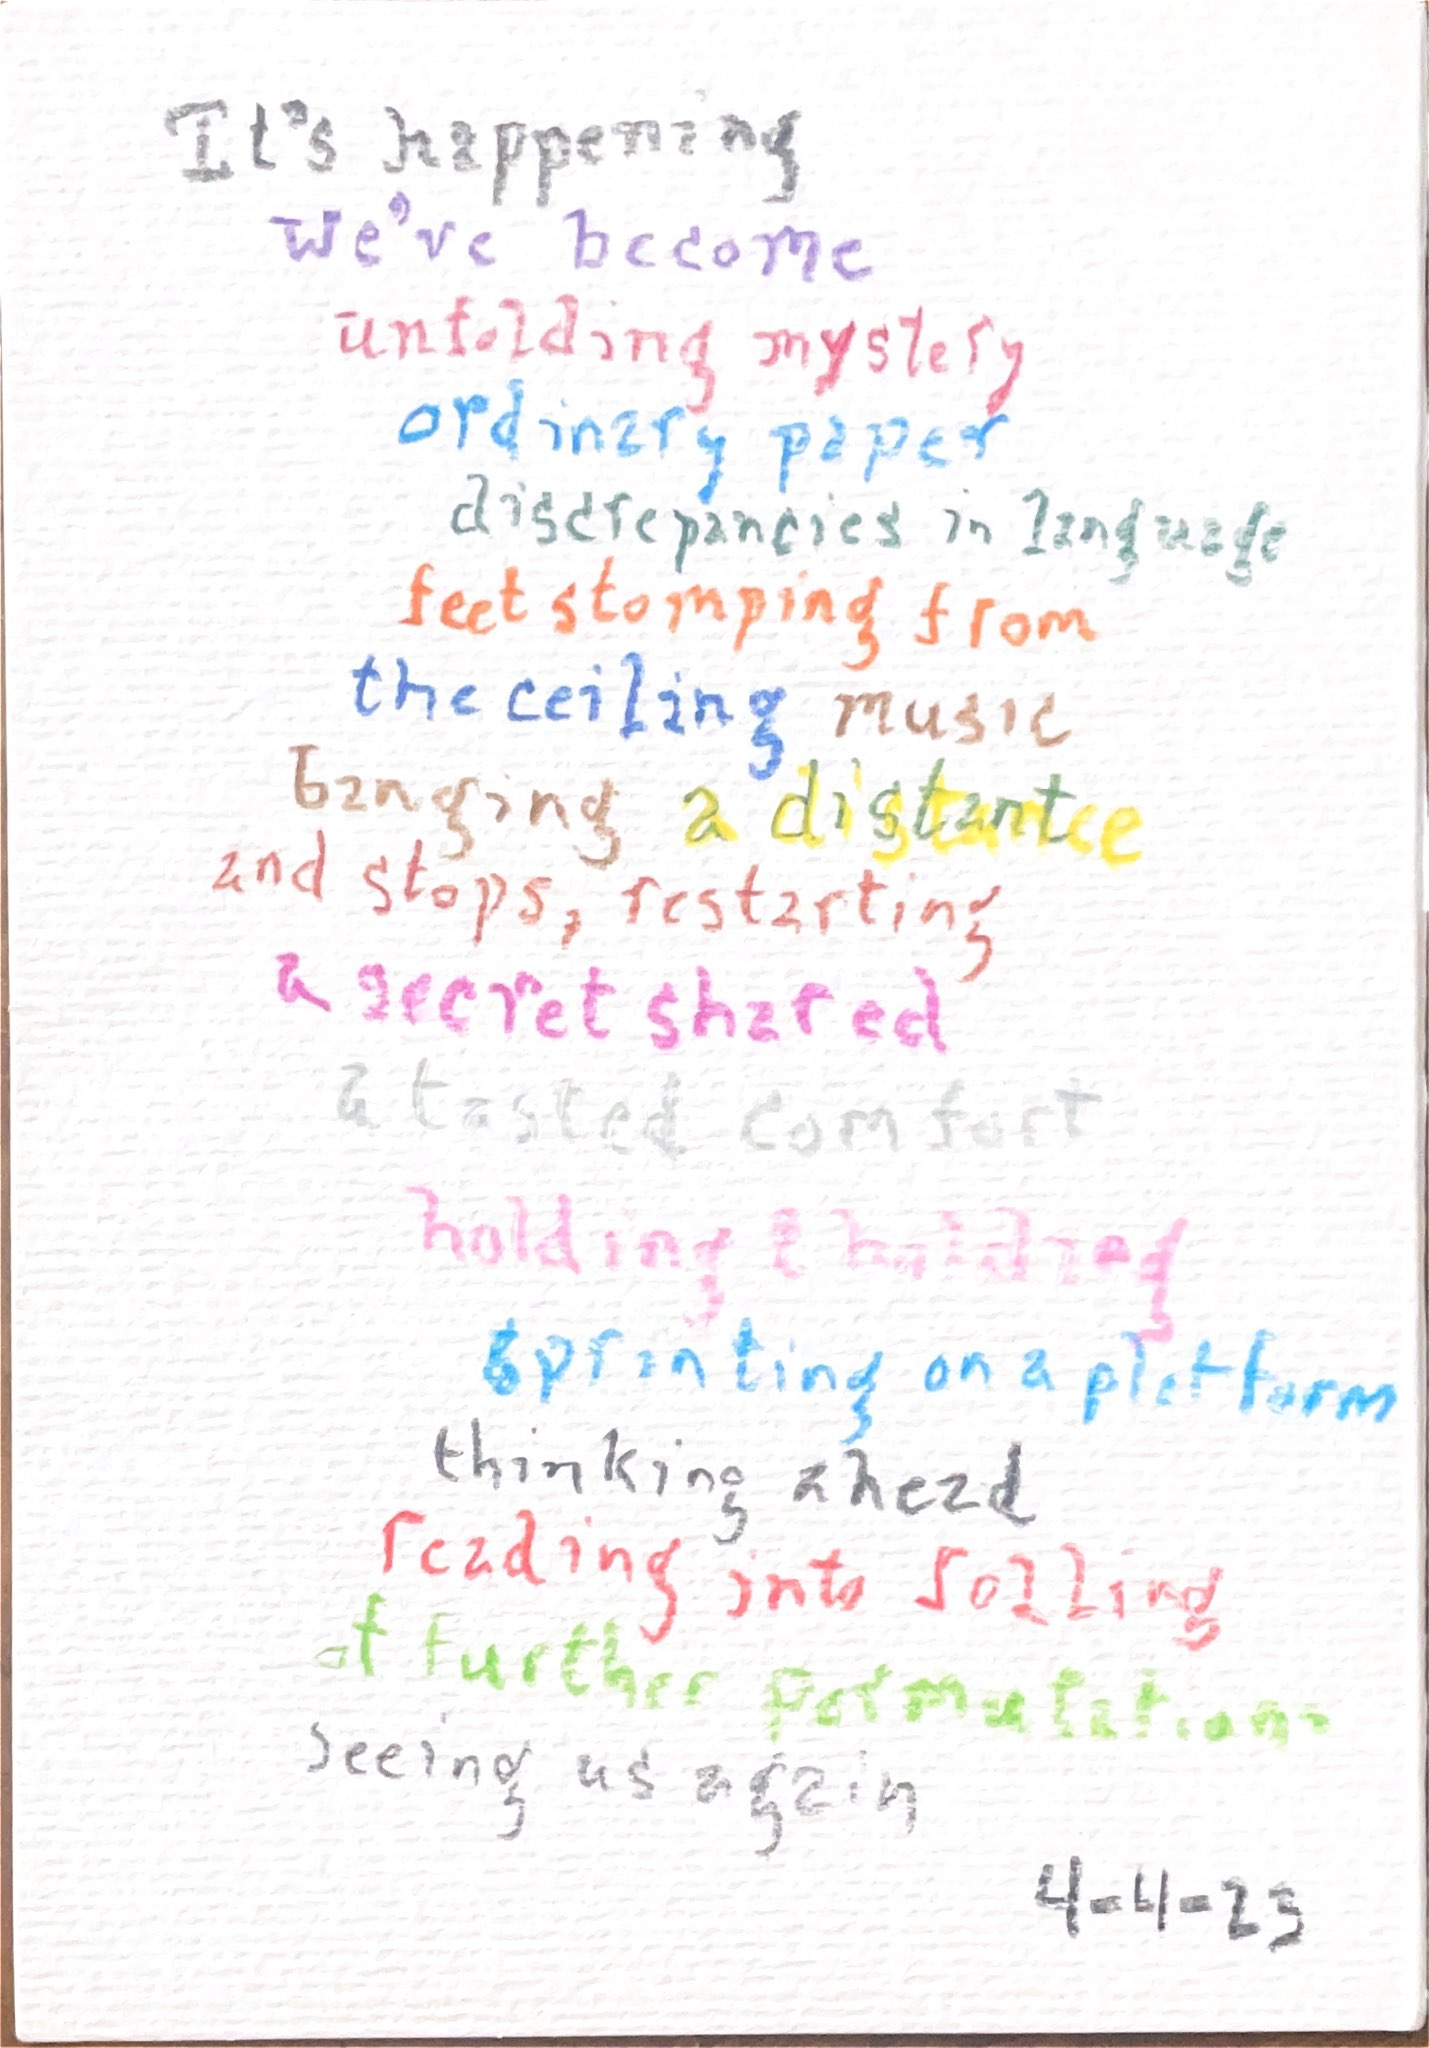 It's happening
we've become
unfolding mystery
ordinary paper
discrepancies in language
feet stomping from
the ceiling music
banging a distance
and stops, restarting
a secret shared
a tasted comfort
holding & holding
sprinting on a platform
thinking ahead
reading into rolling
of further permutations
seeing us again
4-4-23